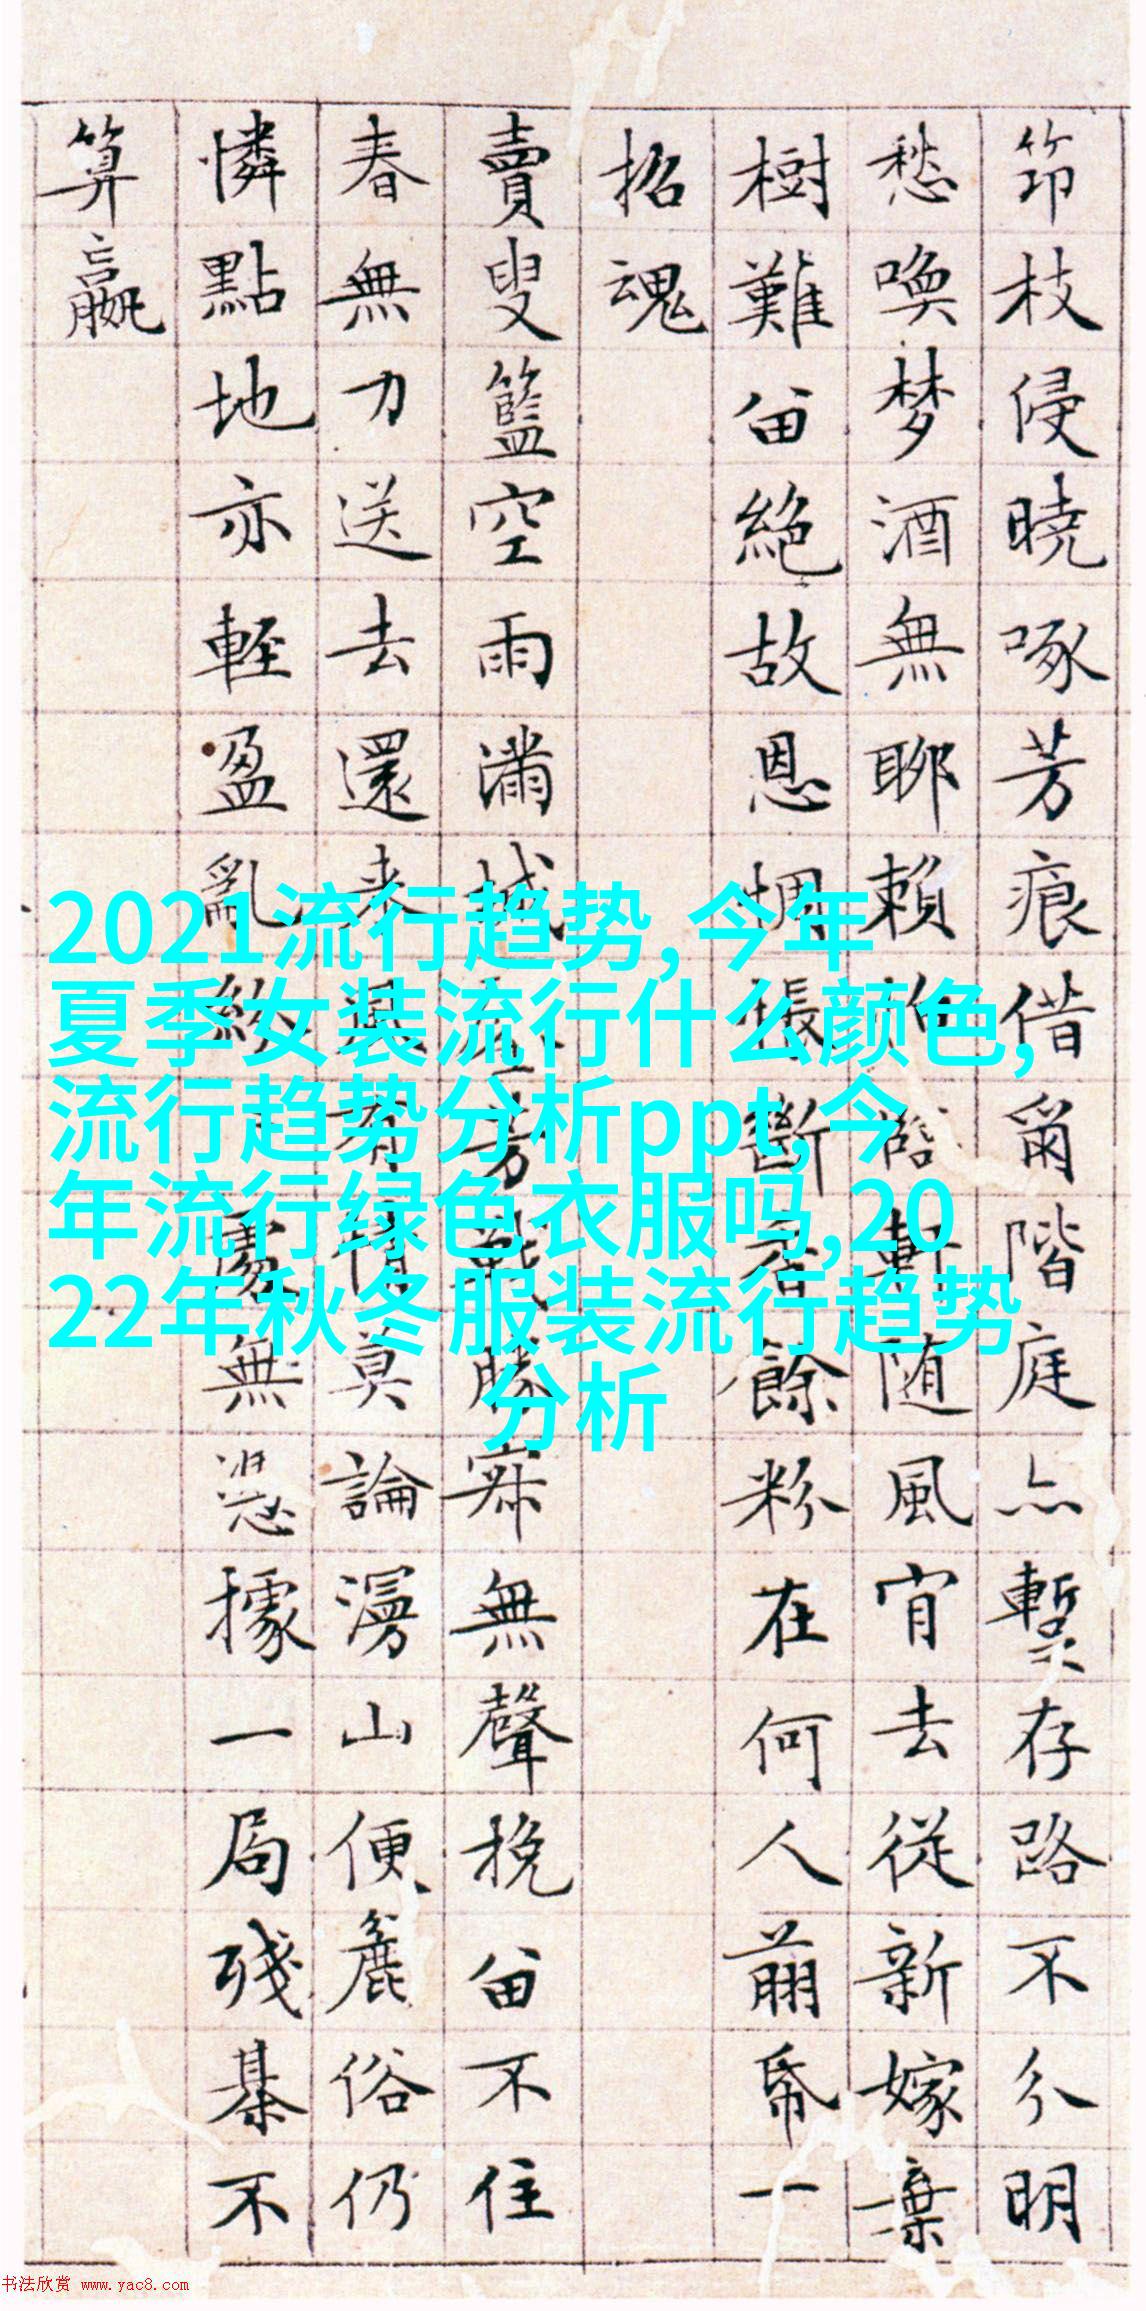 笻枝侵曉啄芳痕借爾階庭亦暫存路不分明
愁喚梦酒無聊賴
随風宵去從新嫁棄
樹難畱絕故恩惆悵斷
餘粉在何人萠帋一
招魂
賣叟籃空雨滿城
勝舜無聲挽畱不住
春無力送去還来
莫論漫山便麄俗仍
憐點地亦輕盈亂紛
處無憑據一局殘棊不
算贏
2021流行趋势,今年
夏季女装流行什么颜色,
流行趋势分析ppt,今
年流行绿色衣服吗,20
22年秋冬服装流行趋势
分析
书法欣赏 www.yac8.com